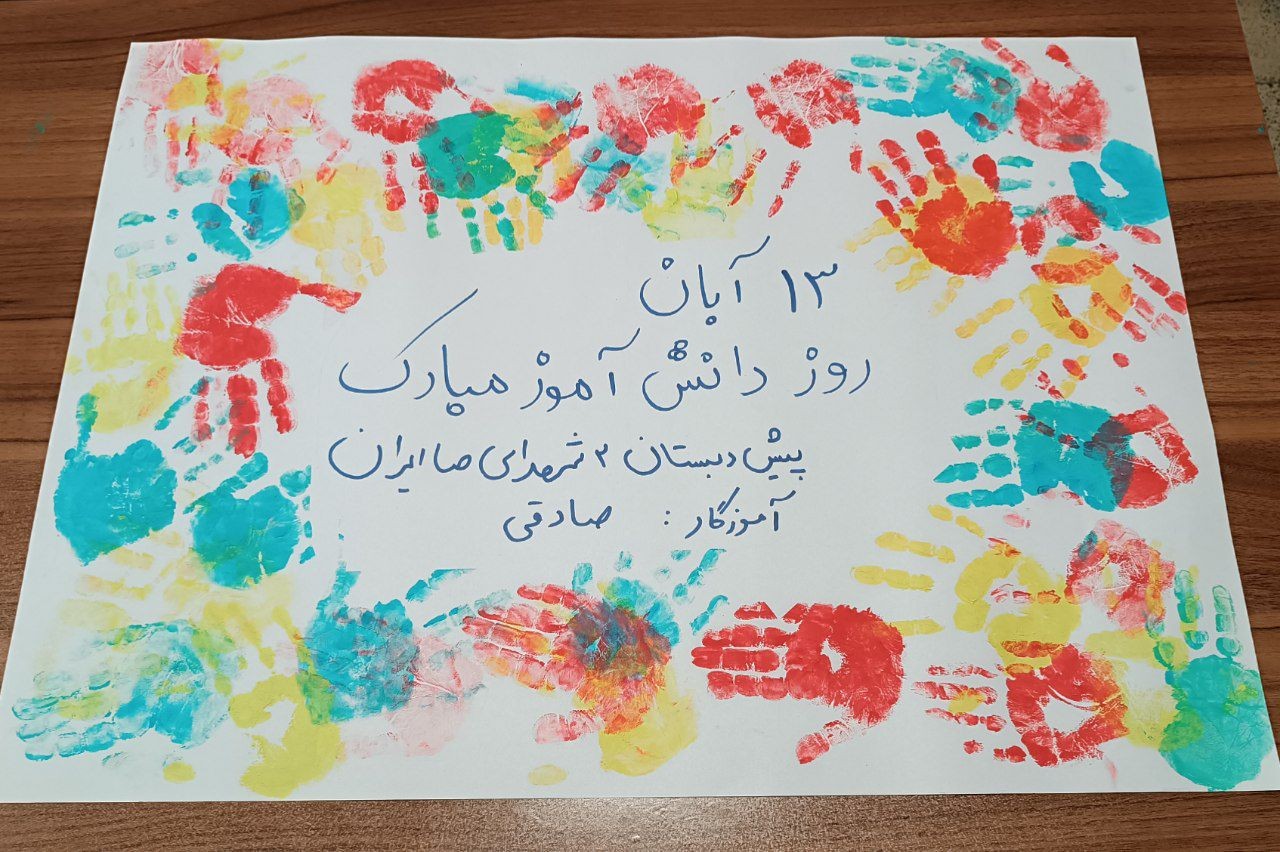 ۱۳ آبان
روز دانش آموز مبارک
پیش دبستان ۲ شهدای صا ایران
آموزگار : صادقی